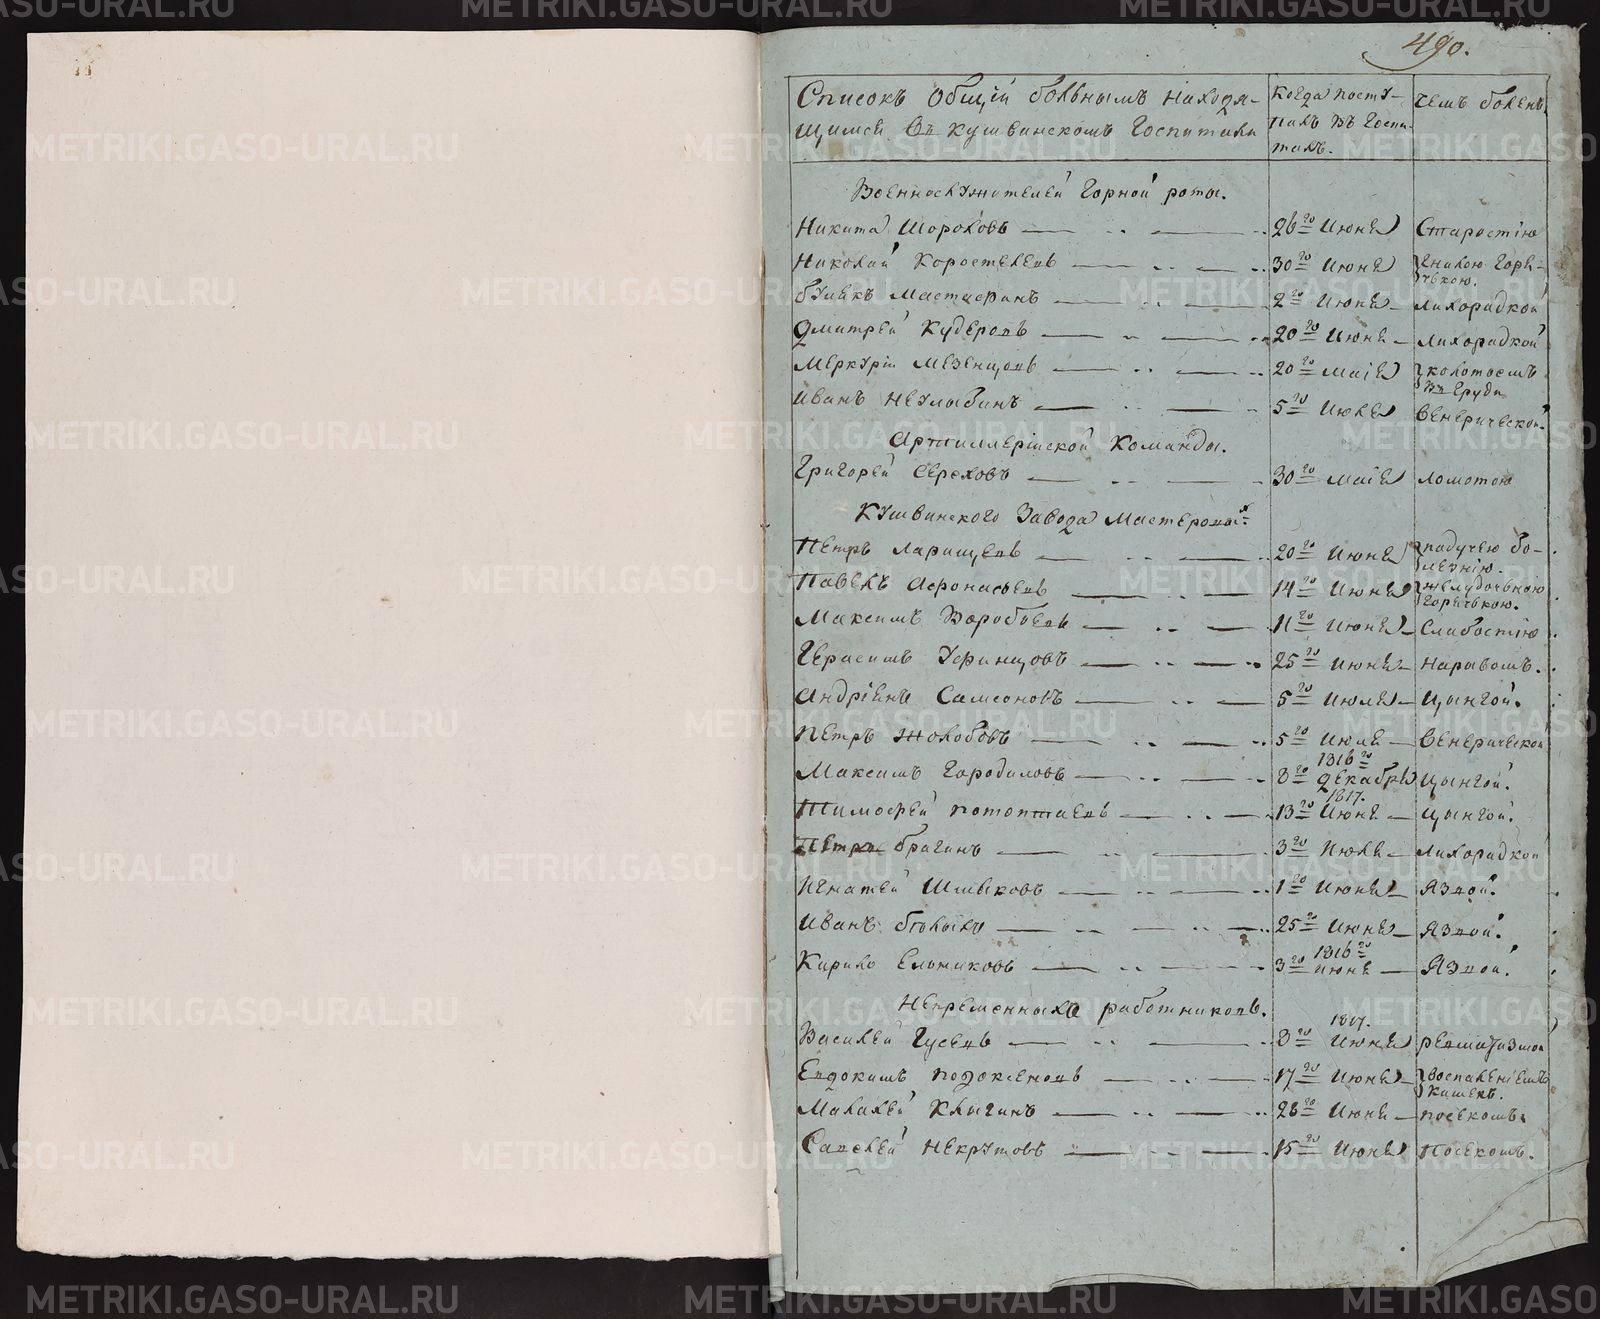 490.
Списокъ Общій больнымъ находя-
щимся въ Кушвинскомъ Госпитали
Когда посту-
пилъ въ Госпи-
таль.
чемъ боленъ
Военнослужителей Горной роты.
Никита Шороховъ 26го Июня Старостію
Николай Коростелевъ 30го Июня гнилою горя-
чькою.
2го Июня лихорадкой
Дмитрей Кудеровъ 20го Июня лихорадкой
Меркурій Мезенцовъ 20го Маія колотьемъ
въ груди
Иванъ Неулыбинъ 5го Июля венерической.
Артиллерійской Команды.
Григорей Серховъ 30го Маія ломотою
Кушвинского Завода Мастеровыхъ
Петръ Ларищевъ 20го Июня падучею бо-
лезнію.
Павелъ Афонасьевъ 14го Июня желудочьною
горячькою.
Максимъ Воробьевъ 11го Июня Слабостію
Герасимъ Уфинцовъ 25го Июня наравомъ.
Андріянъ Самсоновъ 5го Июля цынгой.
Петръ Жолобовъ 5го Июля венерической
1816го
Максимъ Городиловъ 8го Декабря цынгой.
1817.
Тимофей Потоптаевъ 13го Июня цынгой.
Петръ Брагинъ 3го Июля лихорадкой
Игнатей Шлыковъ 1го Июня Язвой.
Иванъ Белыхъ 25го Июня Язвой.
1816го
Кирило Ельниковъ 3го Июня Язвой.
Непременныхъ работниковъ.
1817.
Василей Гусевъ 8го Июня ревматизмой
Евдокимъ Подоксеновъ 17го Июня воспаленіемъ
кишекъ.
Малахей Клыгинъ 28го Июня посекомъ.
Савелей Некрутовъ 15го Июня Посекомъ.
METRIKI.GASO-URAL.RU